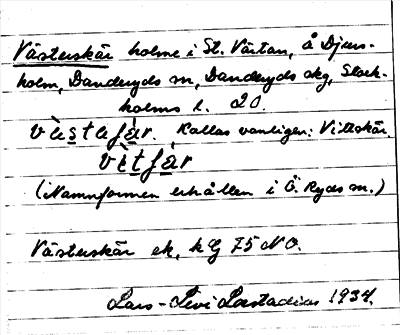 Västerskär holme i St. Värtan, å Djurs-
holm, Danderyds sn, Danderyds skg, Stock-
holms l. 20.
vàstəʃǟr. Kallas vanligen: Vittskär.
vìtʃär
(Namnformen erhållen i Ö. Ryds sn.)
Västerskär ek. kG 75 NO.
Lars-Levi Læstadius 1934.